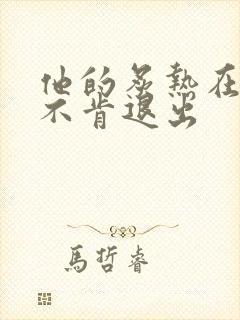 他的炙熱在
不肯退出
馬哲睿